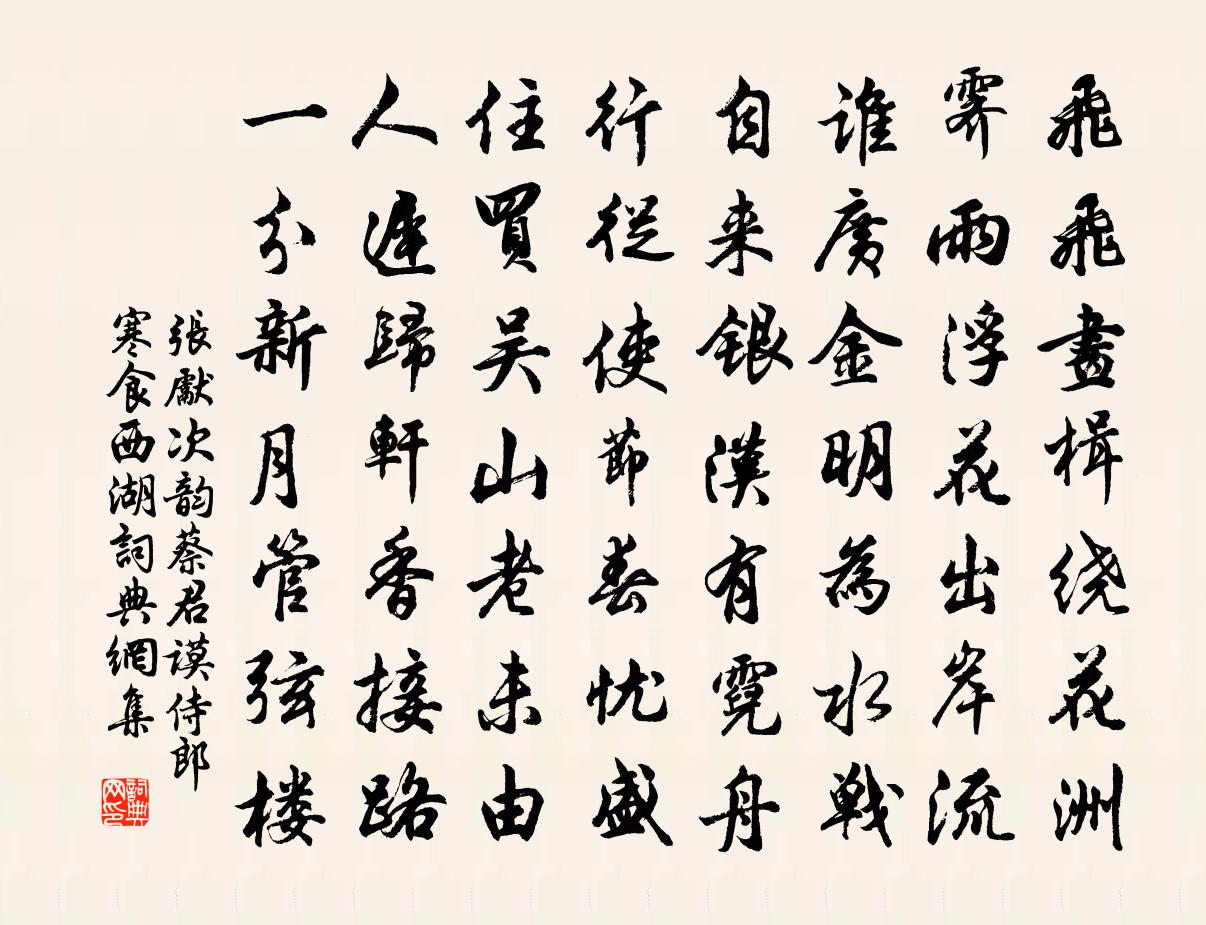 飛飛畫楫绕花洲
霽雨浮花出岸流
誰廣金明為水戰
自来銀漢有霓舟
行從使節春忧盛
住買吴山老未由
人遲歸軒香接路
一分新月管弦楼
張獻次韵蔡君謨侍郎
寒食西湖詞典網集
詞典网印